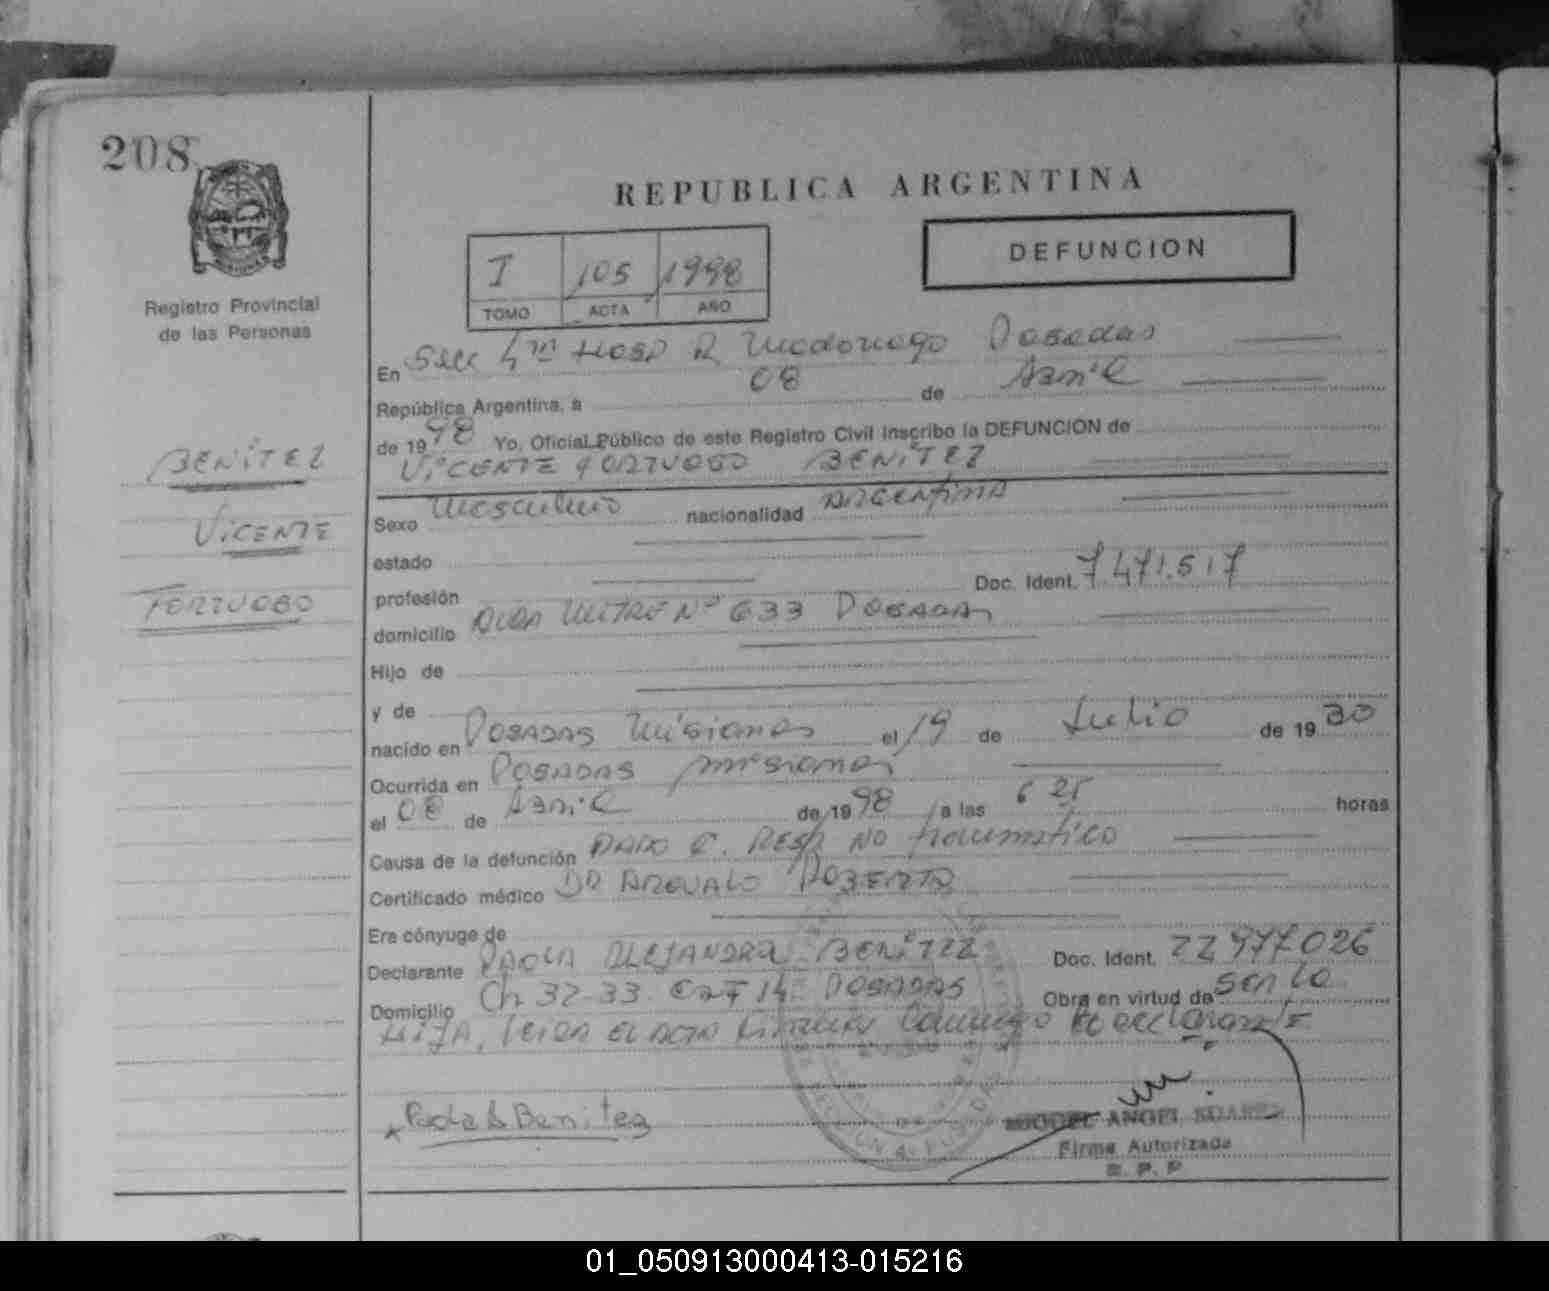 208
REPUBLICA ARGENTINA
DEFUNCION
I 105 1998
TOMO ACTA AÑO
Registro Provincial
de las Personas
BENITEZ
VICENTE
FORTUOSO
En Secc 4ta Hosp R Madariaga Posadas
República Argentina, a 08 de Abril
de 1998 Yo, Oficial Público de este Registro Civil inscribo la DEFUNCION de
VICENTE FORTUOSO BENITEZ
Sexo Masculino nacionalidad ARGENTINA
estado
profesión Doc. Ident. 7471.517
domicilio AVDA MITRE Nº 633 POSADAS
Hijo de
y de
nacido en POSADAS Misiones el 19 de Julio de 1930
Ocurrida en POSADAS Misiones
el 08 de Abril de 1998 a las 6 25 horas
Causa de la defunción PARO C. RESP NO traumático
Certificado médico DR AREVALO ROBERTO
Era cónyuge de
Declarante PAOLA ALEJANDRA BENITEZ Doc. Ident. 22977026
Domicilio Ch 32-33. 14 POSADAS Obra en virtud de ser la
HIJA, leida el ACTA conmigo declarante
Paola Benitez
MIGUEL ANGEL SUAREZ
Firma Autorizada
R. P. P.
01_050913000413-015216